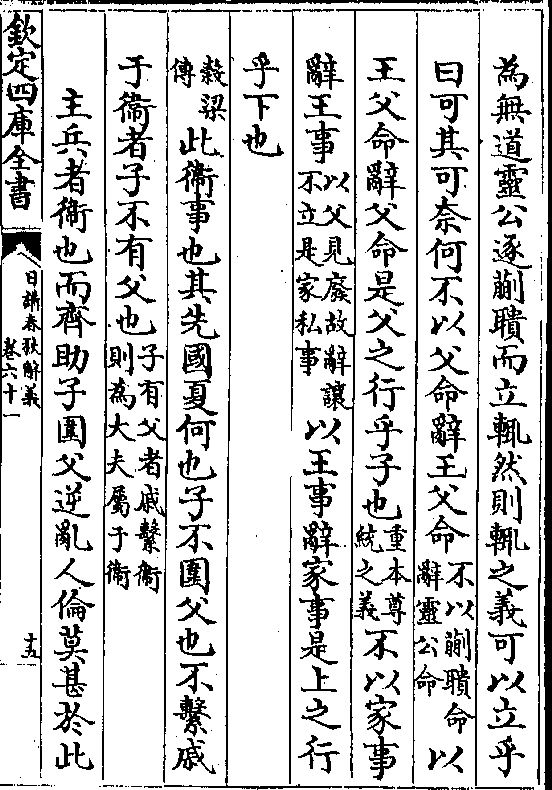 為無道靈公逐蒯聵而立輒然則輒之義可以立乎
曰可其可奈何不以父命辭王父命不以蒯聵命辭靈公命以
王父命辭父命是父之行乎子也重本尊統之義不以家事
辭王事以父見廢故辭讓不立是家私事以王事辭家事是上之行
乎下也
穀梁傳此衞事也其先國夏何也子不圍父也不繫戚
于衞者子不有父也子有父者戚繫衞則為大夫屬于衞
主兵者衞也而齊助子圍父逆亂人倫莫甚於此
欽定四庫全書
日講春秋解義
卷六十一
十五